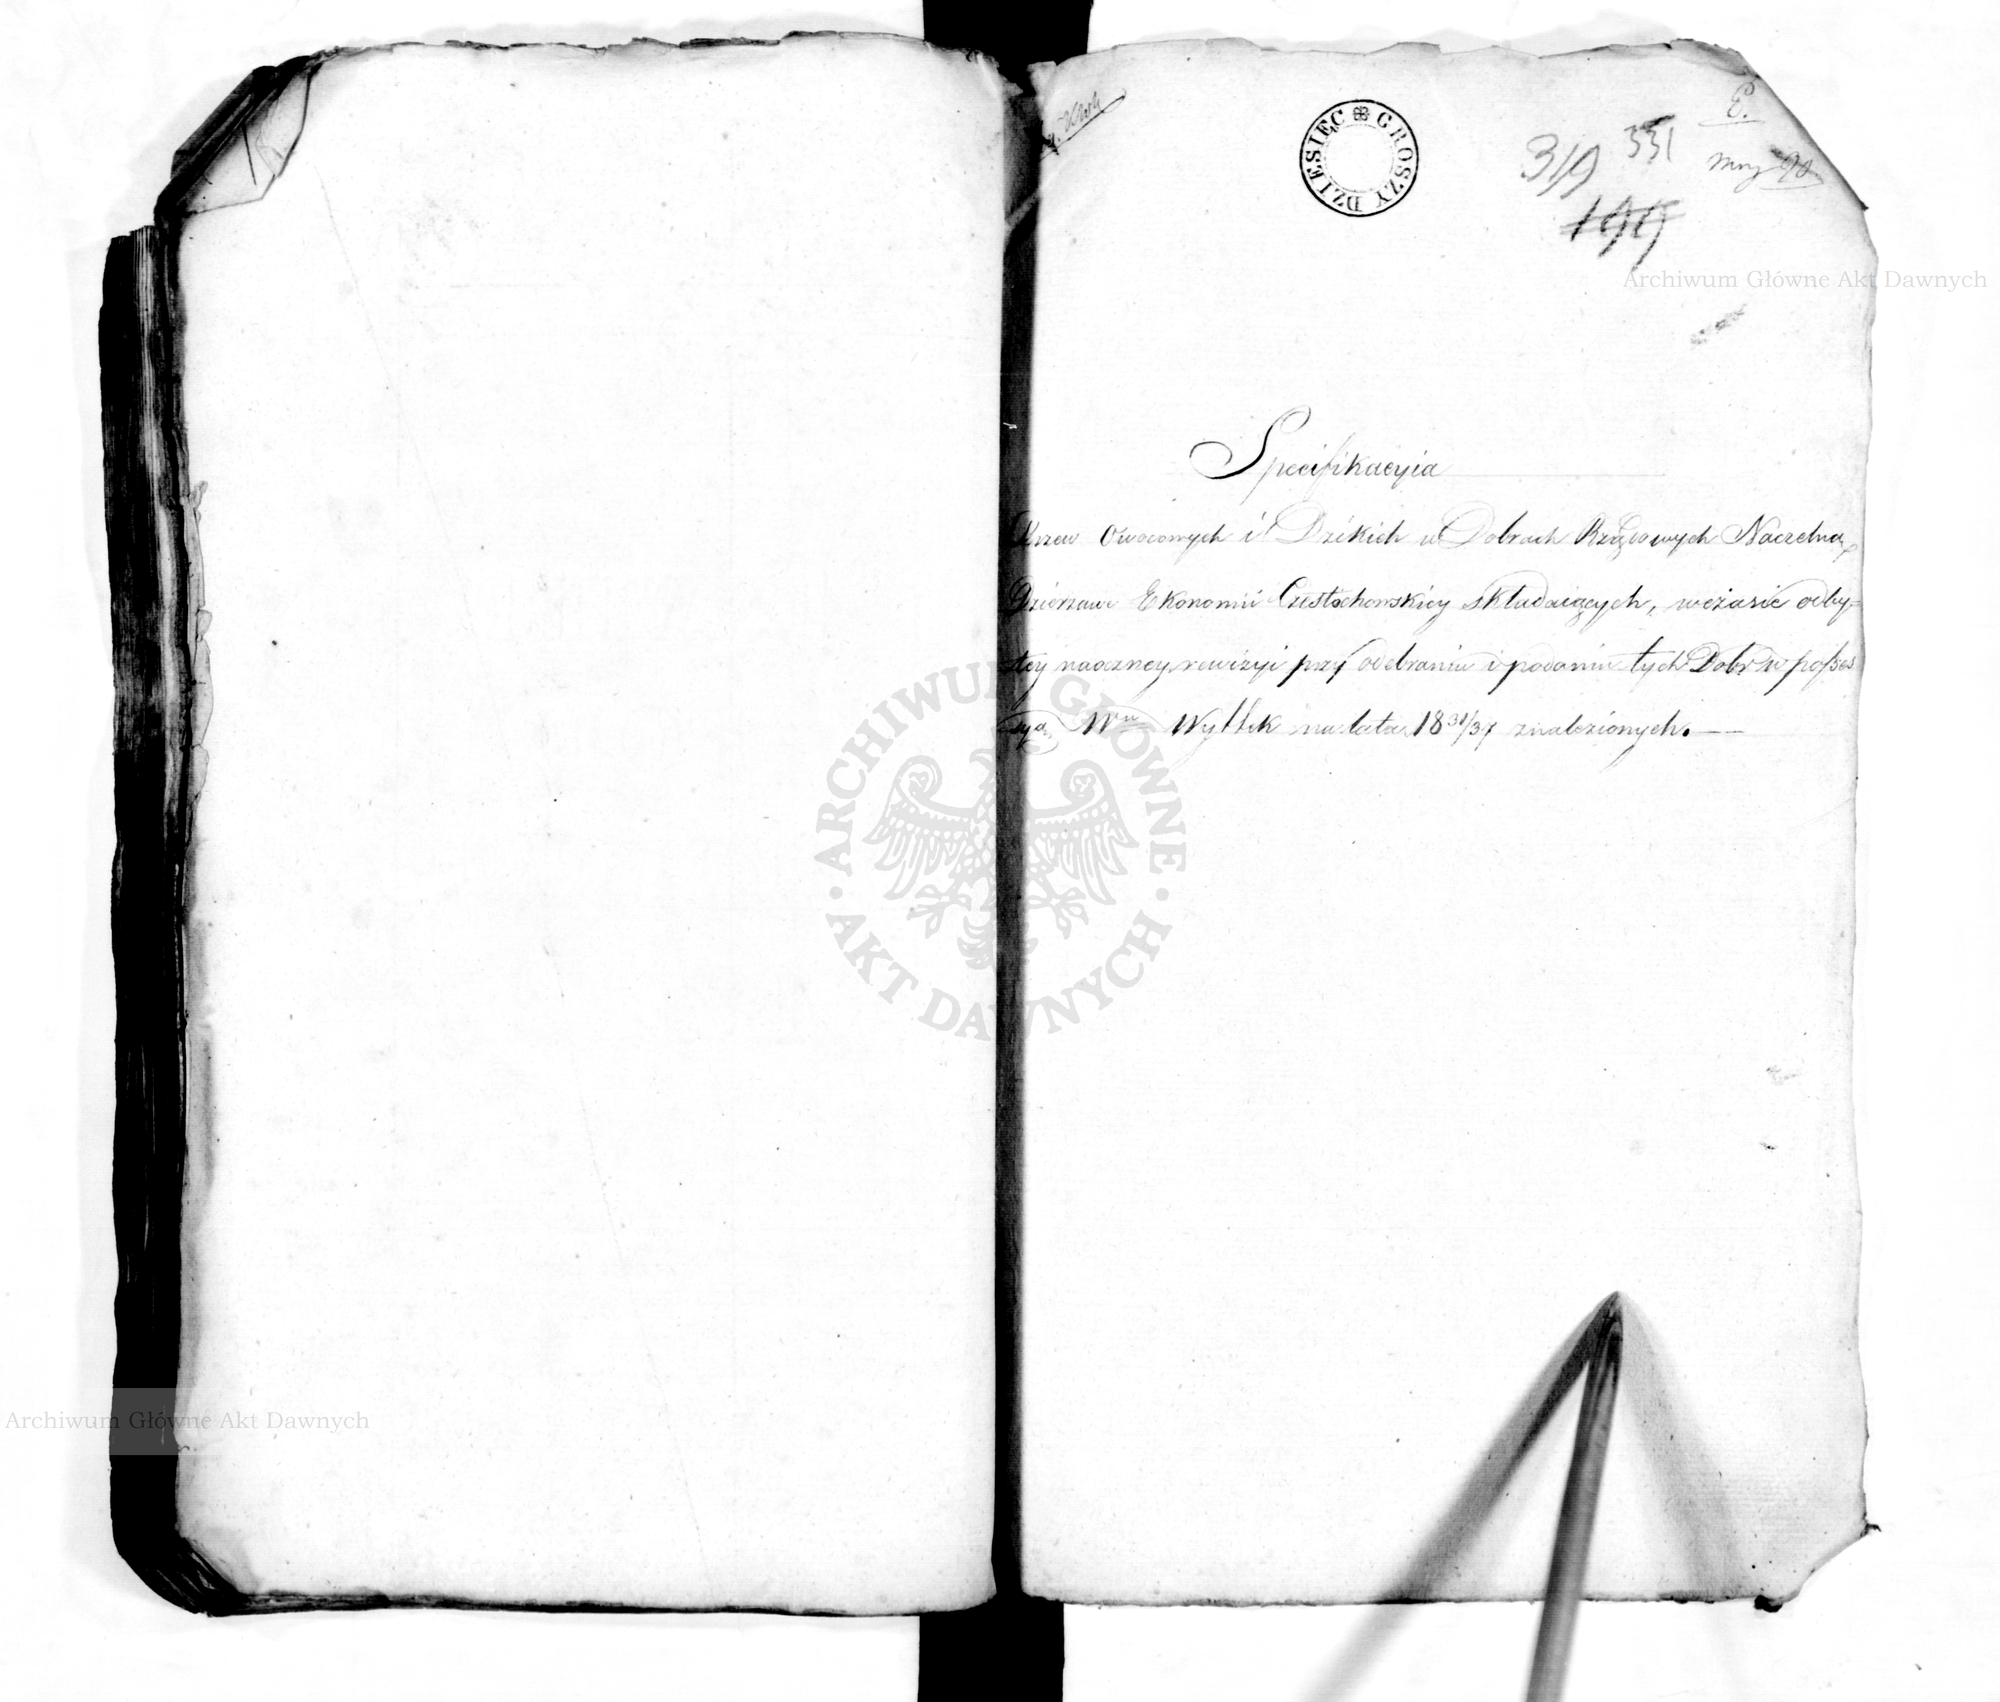 DZIESIĘC GROSZY
E.
319 331
199
Archiwum Główne Akt Dawnych
Specifikacyia
Drzew Owocowych i Dzikich w Dobrach Rządowych Naczelną
Dzierzawę Ekonomii Częstochowskiey składaiących, wczasie odby-
tey naoczney rewizyi przy odebraniu i podaniu tych Dobr w posses
syą Wu na lata 18 31/37 znalezionych.
ARCHIWUM GŁÓWNE
AKT DAWNYCH
Archiwum Główne Akt Dawnych